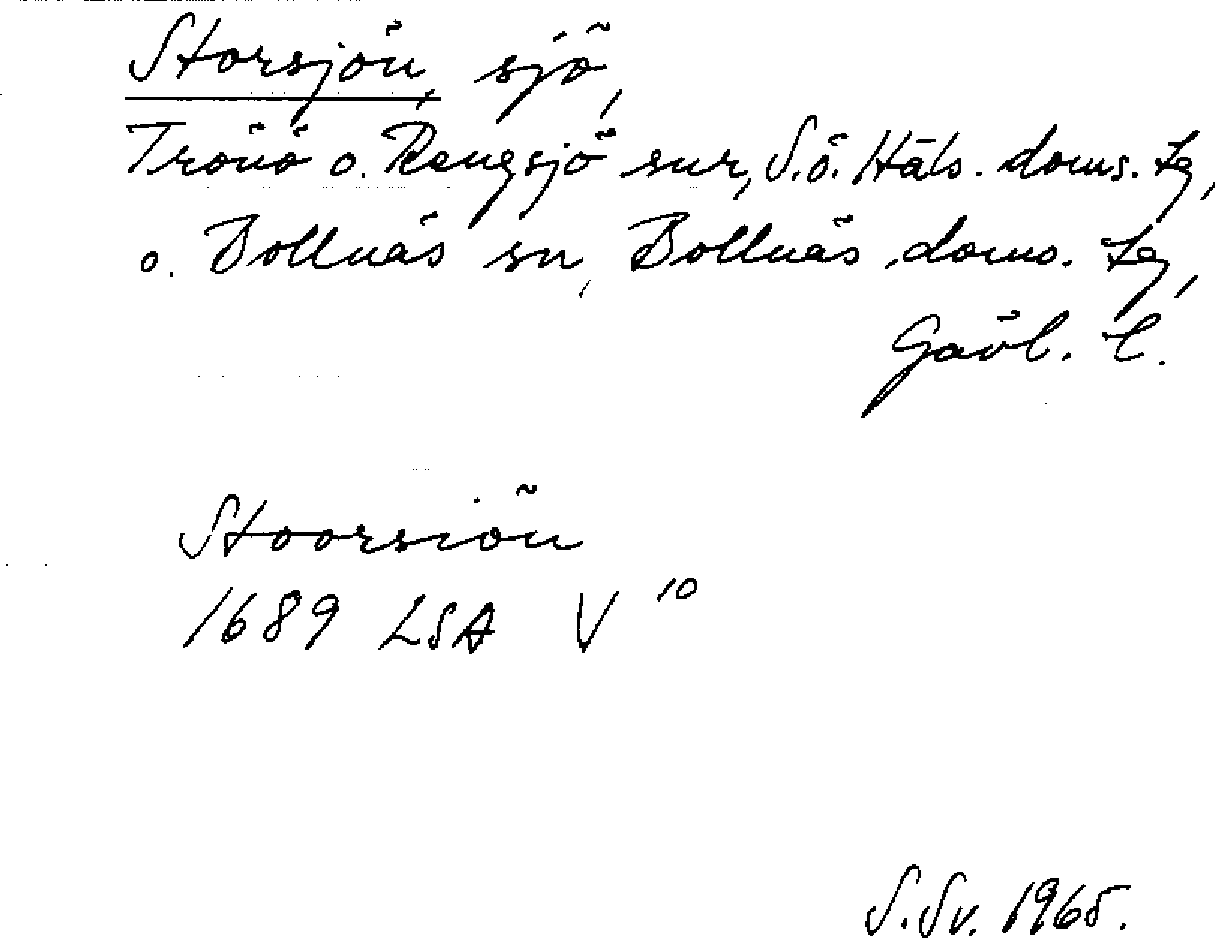 Storsjön, sjö,
Trönö o. Rengsjö snr, S.ö. Häls. doms. tg,
o. Bollnäs sn, Bollnäs doms. tg,
Gävl. l.
Stoorsiön
1689 LSA V 10
S.Sv. 1965.